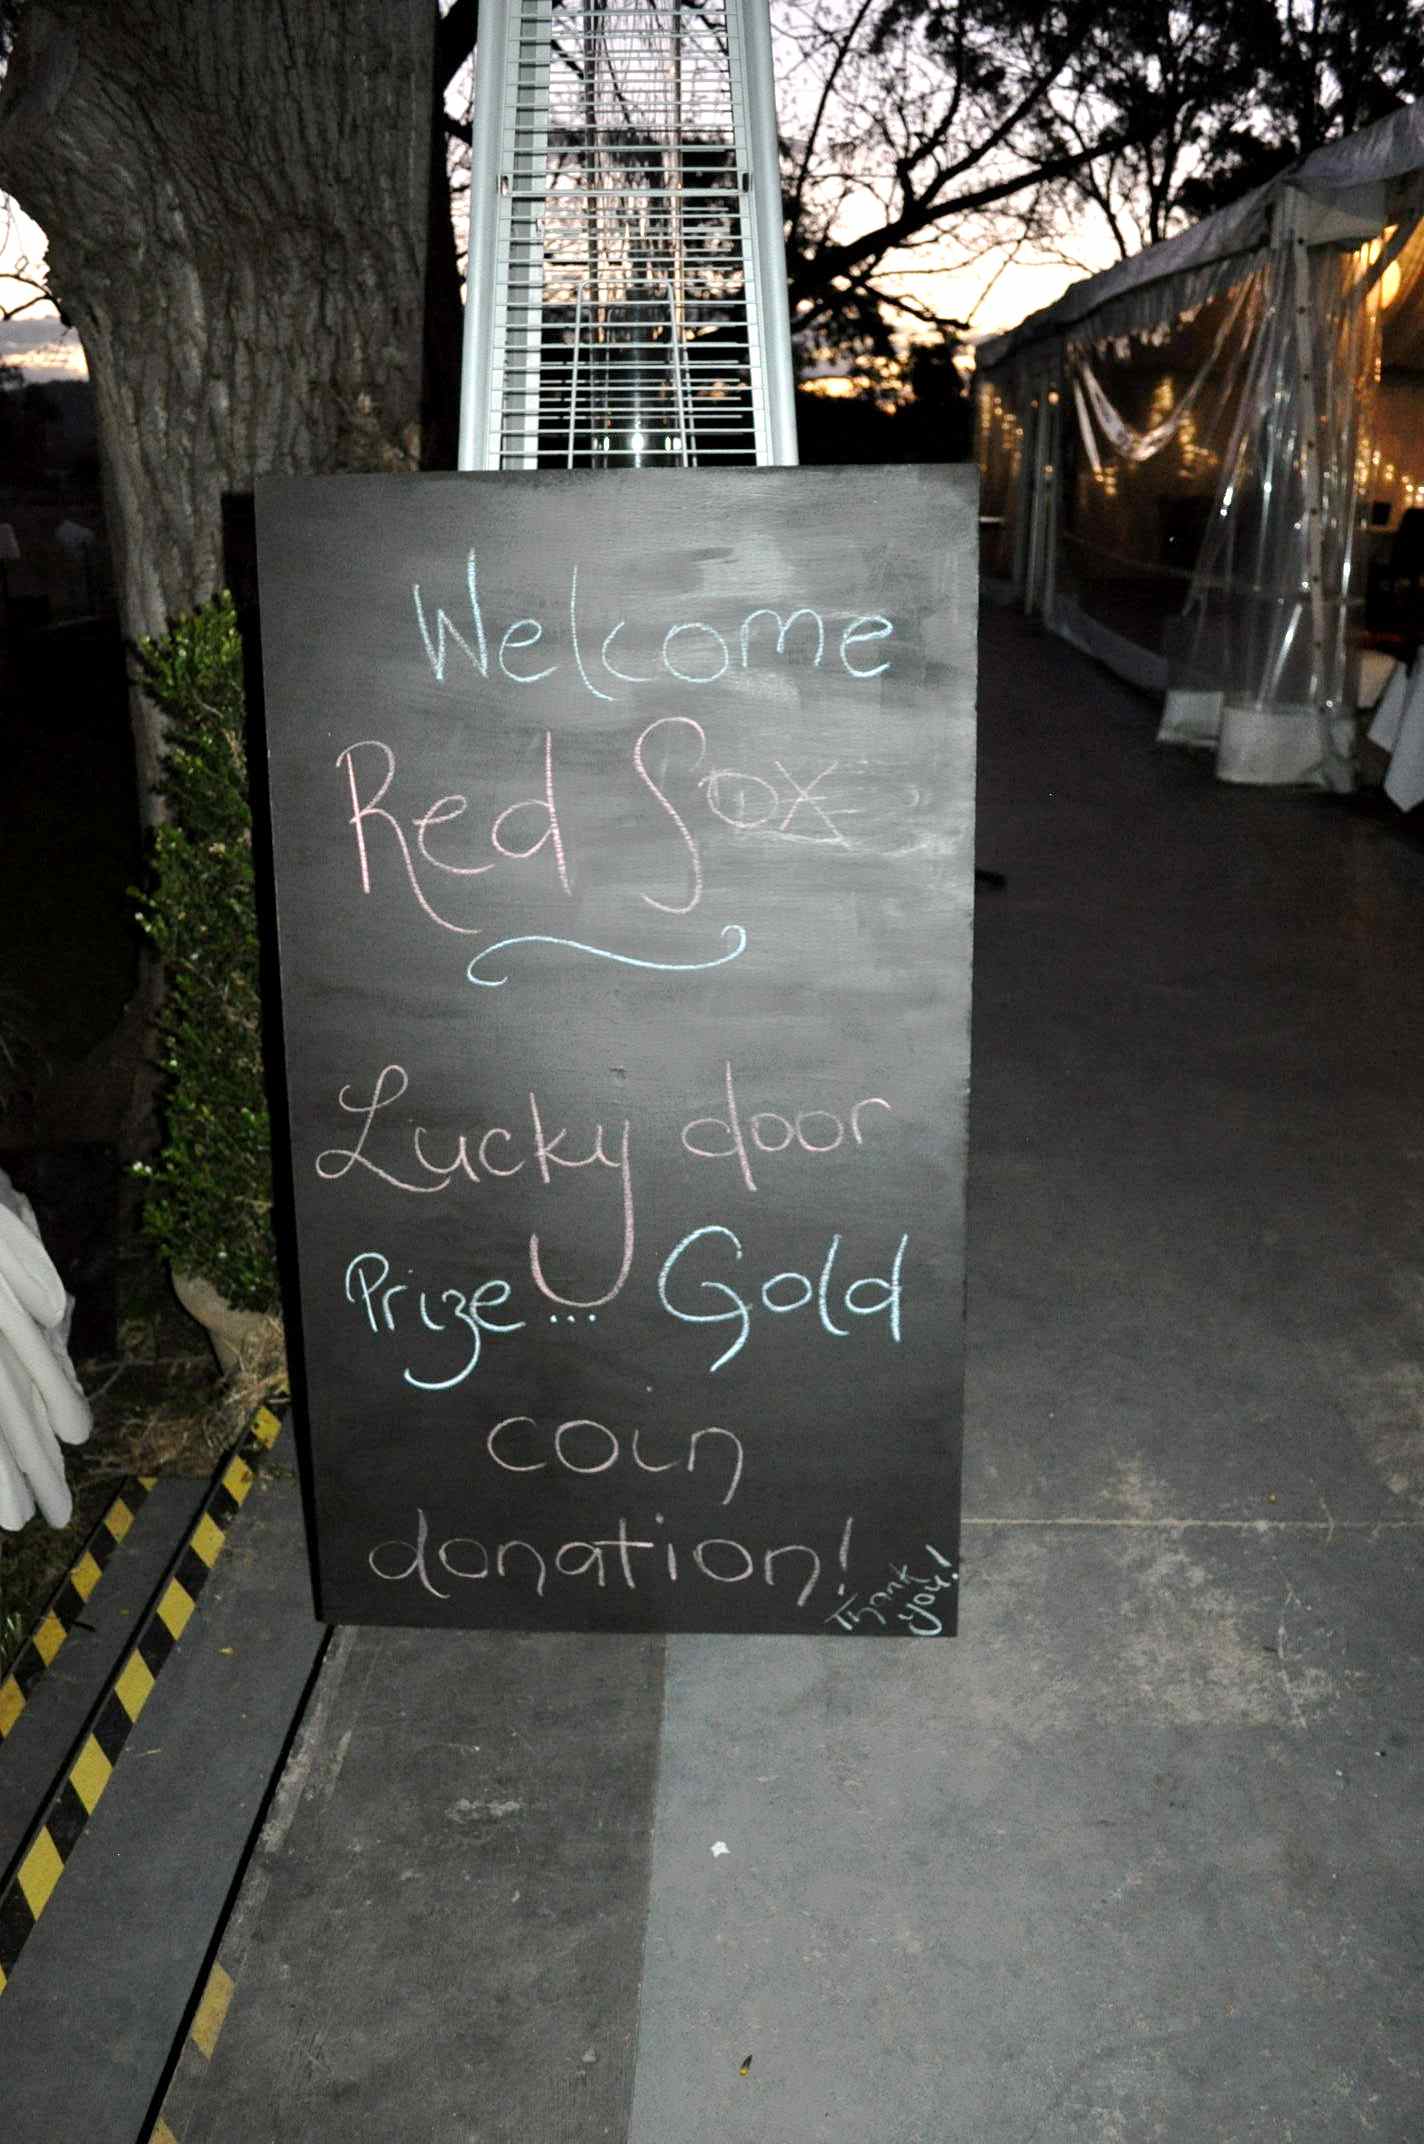 Welcome
Red Fox
Lucky door
Prize... Gold
coin
donation!
Thank
you!